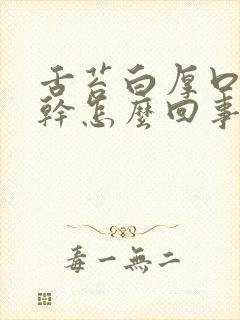 舌苔白厚口
幹怎麼回事
毒一無二